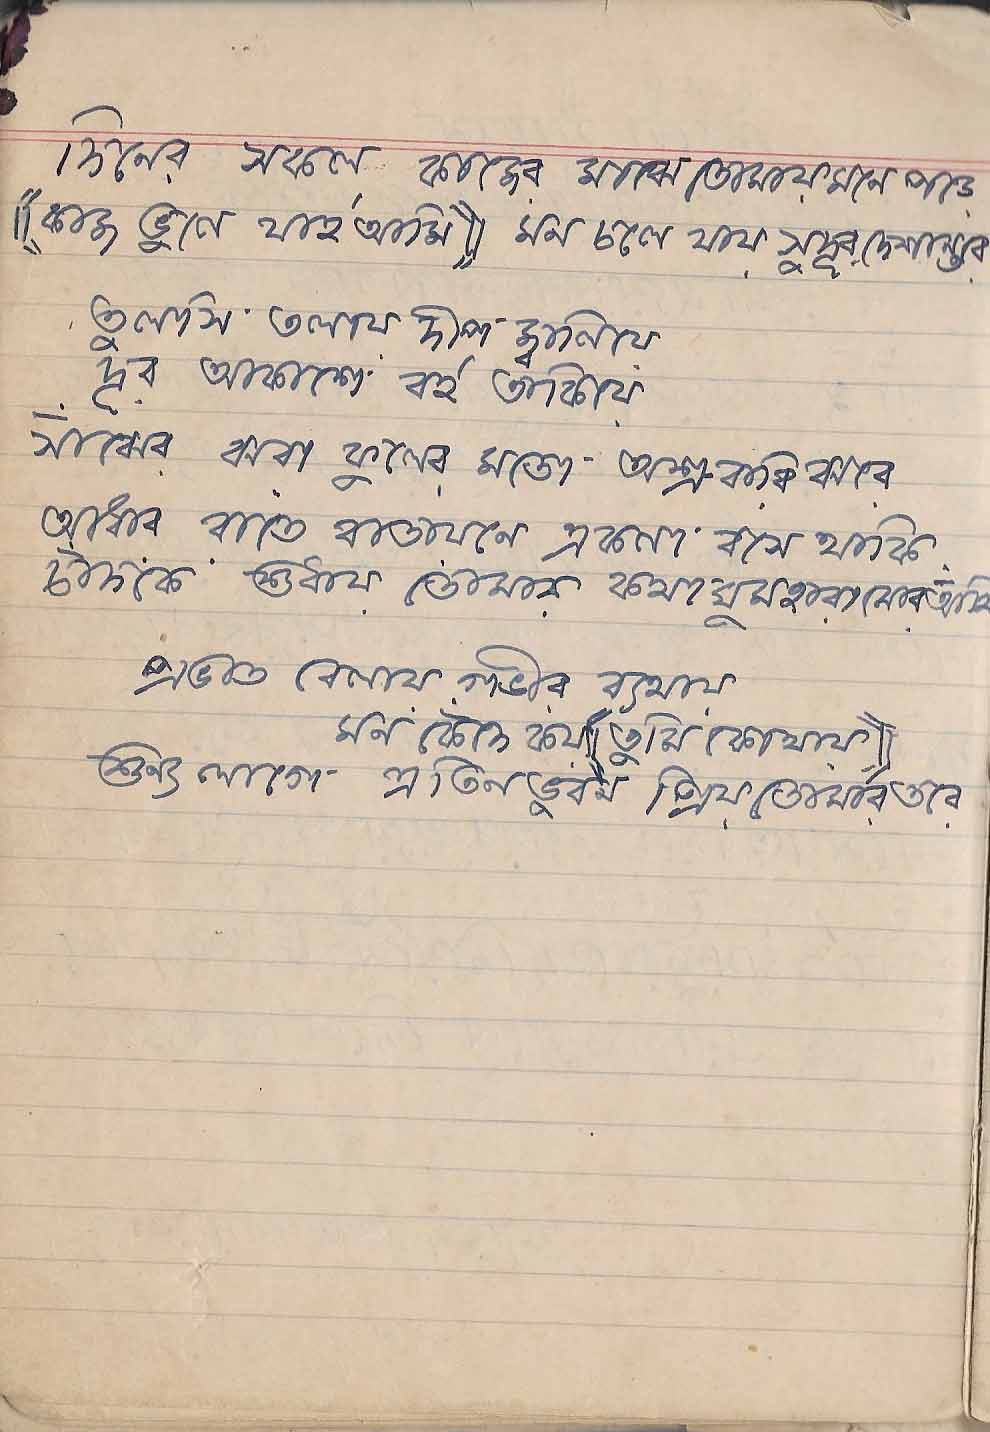 দিনের সকল কাজের মাঝে তোমায় মনে পড়ে
((কাজ ভুলে যাই আমি)) মন চলে যায় সুদূর দেশান্তরে
তুলসি তলায় দীপ জ্বালিয়ে
দূর আকাশে রই তাকিয়ে
সাঁঝের ঝরা ফুলের মতো অশ্রু বারি ঝরে
আঁধার রাতে বাতায়নে একলা বসে থাকি
চাঁদকে শুধায় তোমার কথা ঘুমহারা মোর আঁখি
প্রভাত বেলায় গভীর ব্যথায়
মন কেঁদে কয় ((তুমি কোথায়))
শুন্য লাগে এ তিন ভুবন প্রিয় তোমার তরে